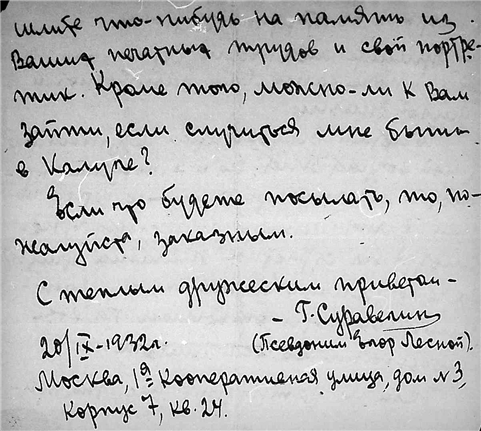 шлите что-нибудь на память из
Ваших печатных трудов и свой портре-
тик. Кроме того, можно-ли к Вам
зайти, если случиться мне быть
в Калуге?
Если что будете посылать, то, по-
жалуйста, заказным.
С теплым дружеским приветом -
- Г. Суравегин
20/IX-1932г. (Псевдоним Егор Лесной).
Москва, 1ая Кооперативная улица, дом №3,
Корпус 7, кв. 24.